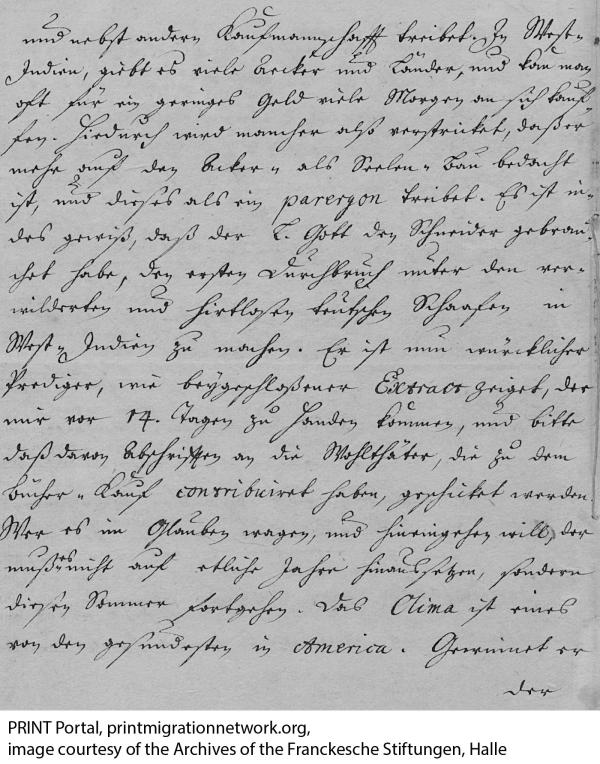 und nebst andern Kaufmannschafft treibet. In West-
Indien, giebt es viele Aecker und Länder, und kan man
oft für ein geringes Geld viele Morgen an sich kauf-
fen. Hiedurch wird mancher also verstricket, daß er
mehr auf den Acker- als Seelen-Bau bedacht
ist, und dieses als ein parergon treibet. Es ist in-
des gewiß, daß der l. Gott den Schneider gebrau-
chet habe, den ersten Durchbruch unter den ver-
wilderten und hirtlosen teutschen Schaafen in
West-Indien zu machen. Er ist nun würcklicher
Prediger, wie beygeschloßener Extract zeiget, der
mir vor 14. Tagen zu Handen kommen, und bitte
daß davon Abschriften an die Wohlthäter, die zu dem
Bücher-Kauf contribuiret haben, geschicket werden.
Wer es im Glauben wagen, und hineingehen will, der
muß es nicht auf etliche Jahre hinaussetzen, sondern
diesen Sommer fortgehen. Das Clima ist eines
von den gesundesten in America. Gewinnet er
der
PRINT Portal, printmigrationnetwork.org,
image courtesy of the Archives of the Franckesche Stiftungen, Halle